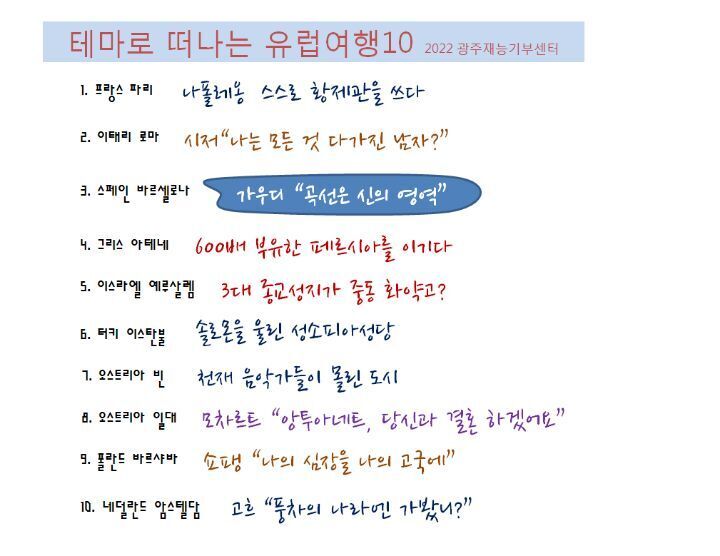 테마로 떠나는 유럽여행10 2022 광주재능기부센터
1. 프랑스 파리 나폴레옹 스스로 황제관을 쓰다
2. 이태리 로마 시저“나는 모든 것 다가진 남자?”
3. 스페인 바르셀로나 가우디 “곡선은 신의 영역”
4. 그리스 아테네 600배 부유한 페르시아를 이기다
5. 이스라엘 예루살렘 3대 종교성지가 중동 화약고?
6. 터키 이스탄불 솔로몬을 울린 성소피아성당
7. 오스트리아 빈 천재 음악가들이 몰린 도시
8. 오스트리아 일대 모차르트 “앙투아네트, 당신과 결혼 하겠어요”
9. 폴란드 바르샤바 쇼팽 “나의 심장을 나의 고국에”
10. 네덜란드 암스텔담 고흐 “풍차의 나라엔 가봤니?”